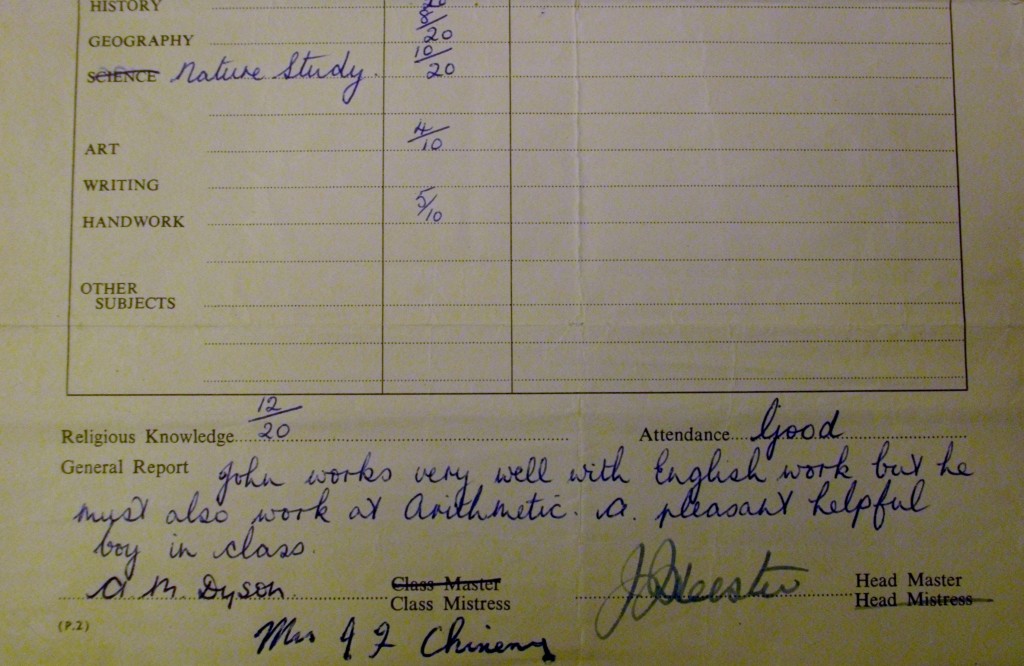 HISTORY
GEOGRAPHY 20
SCIENCE Nature Study. 10/20
ART 4/10
WRITING
HANDWORK 5/10
OTHER
SUBJECTS
Religious Knowledge 12/20 Attendance Good
General Report John works very well with English work but he
must also work at Arithmetic. A pleasant helpful
boy in class.
A M. Dyson Class Master
Class Mistress
Head Master
Head Mistress
(P.2)
Mrs J F